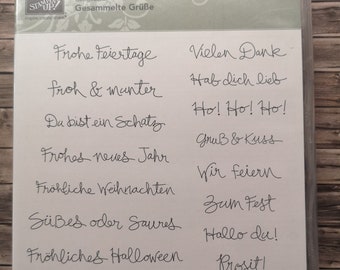 STAMPIN' UP!
Gesammelte Grüße
Frohe Feiertage
froh & munter
Du bist ein Schatz
Frohes neues Jahr
Fröhliche Weihnachten
Süßes oder Saures
Fröhliches Halloween
Vielen Dank
Hab dich lieb
Ho! Ho! Ho!
Gruß & Kuss
Wir feiern
Zum Fest
Hallo du!
Prosit!